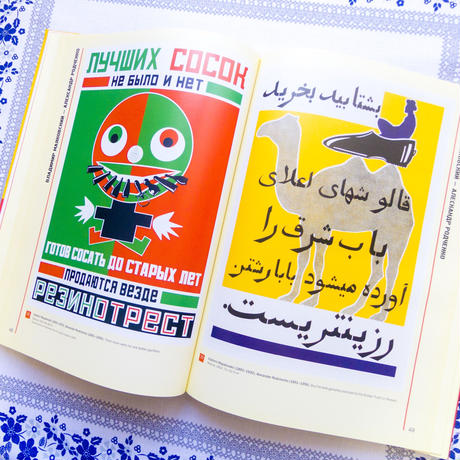 ВЛАДИМИР МАЯКОВСКИЙ — АЛЕКСАНДР РОДЧЕНКО
ЛУЧШИХ СОСОК
НЕ БЫЛО И НЕТ
ГОТОВ СОСАТЬ ДО СТАРЫХ ЛЕТ
ПРОДАЮТСЯ ВЕЗДЕ
РЕЗИНОТРЕСТ
بشتابید بخرید
قالوشهای اعلای
باب شرق را
آورده میشود بابارشتن
رزینتریست.
АЛЕКСАНДР РОДЧЕНКО
48
49